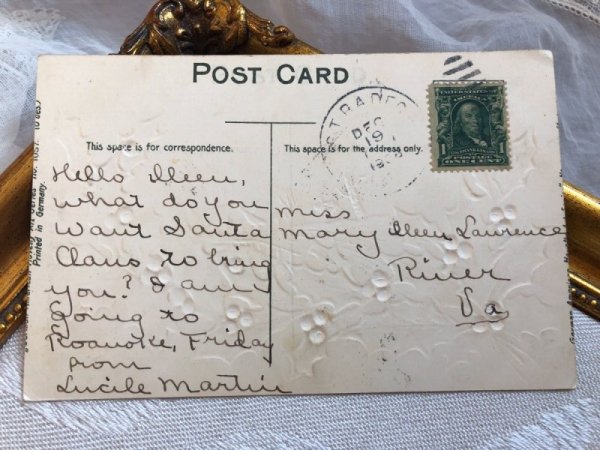 POST CARD
This space is for correspondence.
This space is for the address only.
Hello Ileen,
what do you
want Santa
Claus to bring
you? I am
going to
Roanoke, Friday
from
Lucile Martin
Miss
Mary Ileen Lawrence
River
Va
DEC
19
UNITED STATES OF AMERICA
1 1
POSTAGE
ONE CENT
Printed in Germany.